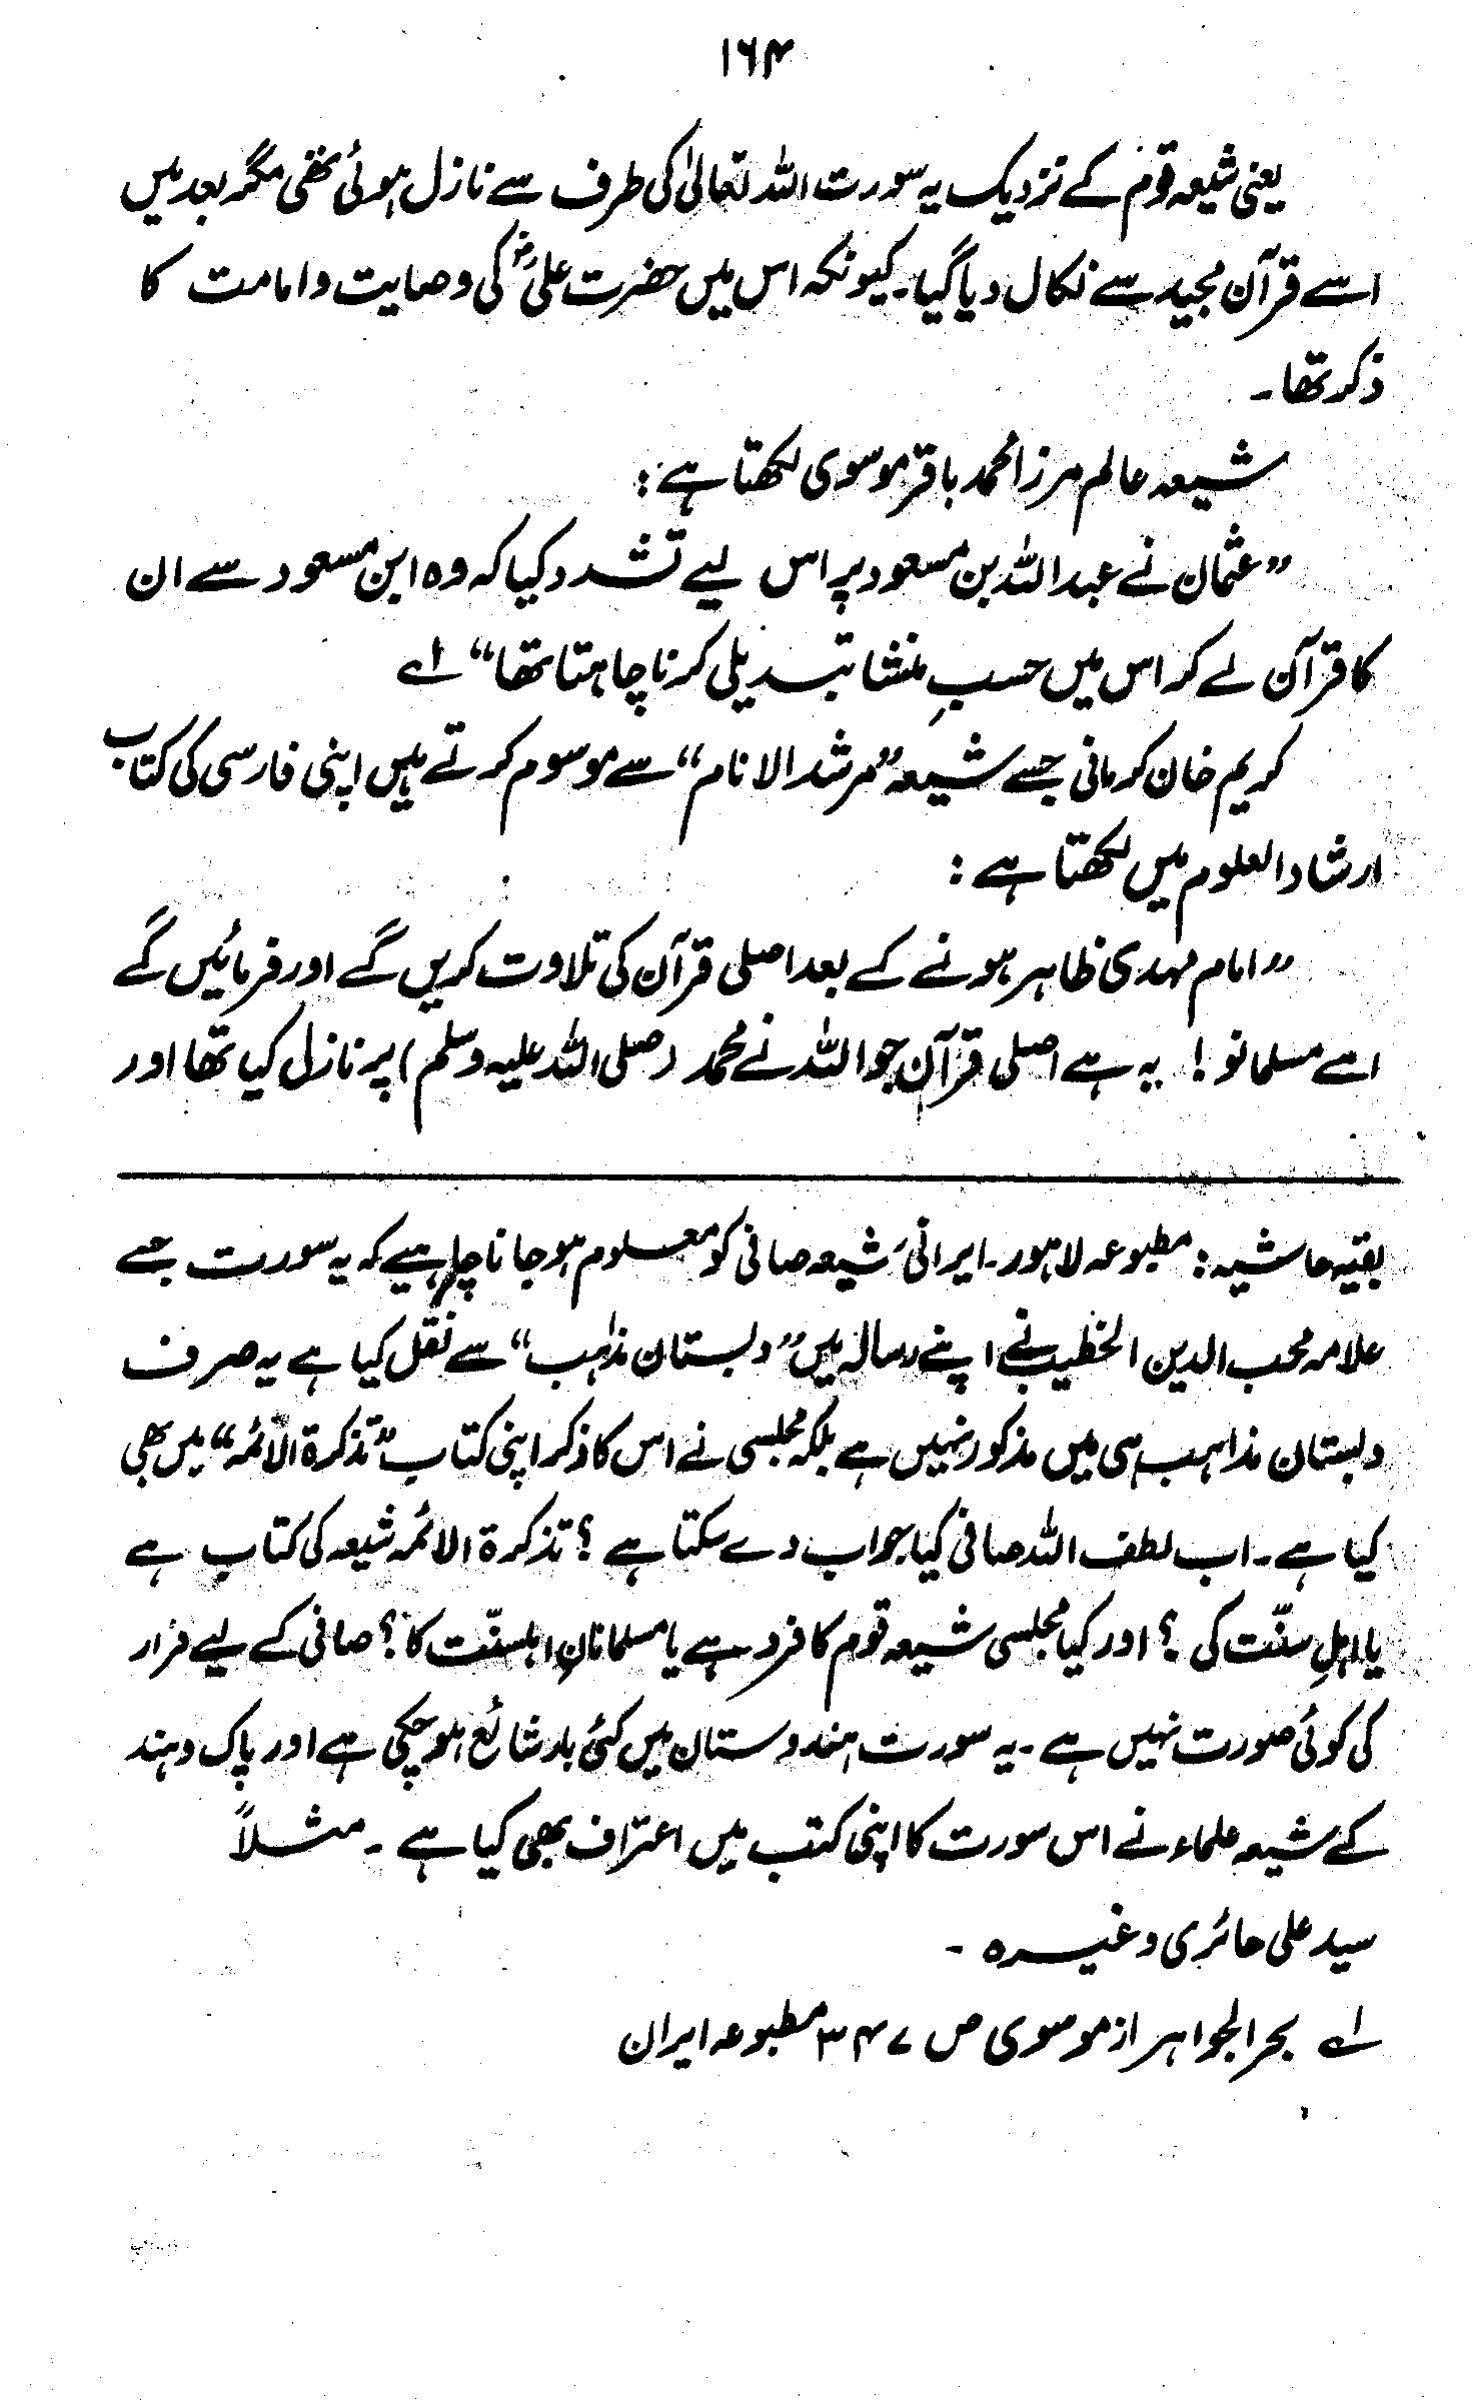 ۱۶۴
یعنی شیعہ قوم کے نزدیک یہ سورت اللہ تعالیٰ کی طرف سے نازل ہوئی تھی مگر بعد میں
اسے قرآن مجید سے نکال دیا گیا۔ کیونکہ اس میں حضرت علیؓ کی وصایت و امامت کا
ذکر تھا۔
شیعہ عالم مرزا محمد باقر موسوی لکھتا ہے:
”عثمان نے عبداللہ بن مسعود پر اس لیے تشدد کیا کہ وہ ابن مسعود سے ان
کا قرآن لے کر اس میں حسبِ منشا تبدیلی کرنا چاہتا تھا“ ۱ے
کریم خان کرمانی جسے شیعہ ”مرشد الانام“ سے موسوم کرتے ہیں اپنی فارسی کی کتاب
ارشاد العلوم میں لکھتا ہے:
”امام مہدی ظاہر ہونے کے بعد اصلی قرآن کی تلاوت کریں گے اور فرمائیں گے
اے مسلمانو! یہ ہے اصلی قرآن جو اللہ نے محمد (صلی اللہ علیہ وسلم) پر نازل کیا تھا اور
بقیہ حاشیہ: مطبوعہ لاہور۔ ایرانی شیعہ صافی کو معلوم ہو جانا چاہیے کہ یہ سورت جسے
علامہ محب الدین الخطیب نے اپنے رسالہ میں ”دبستان مذاہب“ سے نقل کیا ہے یہ صرف
دبستان مذاہب ہی میں مذکور نہیں ہے بلکہ مجلسی نے اس کا ذکر اپنی کتاب ”تذکرۃ الائمہ“ میں بھی
کیا ہے۔ اب لطف اللہ صافی کیا جواب دے سکتا ہے؟ تذکرۃ الائمہ شیعہ کی کتاب ہے
یا اہلِ سنّت کی؟ اور کیا مجلسی شیعہ قوم کا فرد ہے یا مسلمانانِ اہلسنّت کا؟ صافی کے لیے فرار
کی کوئی صورت نہیں ہے۔ یہ سورت ہندوستان میں کئی بار شائع ہو چکی ہے اور پاک وہند
کے شیعہ علماء نے اس سورت کا اپنی کتب میں اعتراف بھی کیا ہے۔ مثلاً
سید علی حائری وغیرہ۔
۱ے بحر الجواہر از موسوی ص ۳۴۷ مطبوعہ ایران